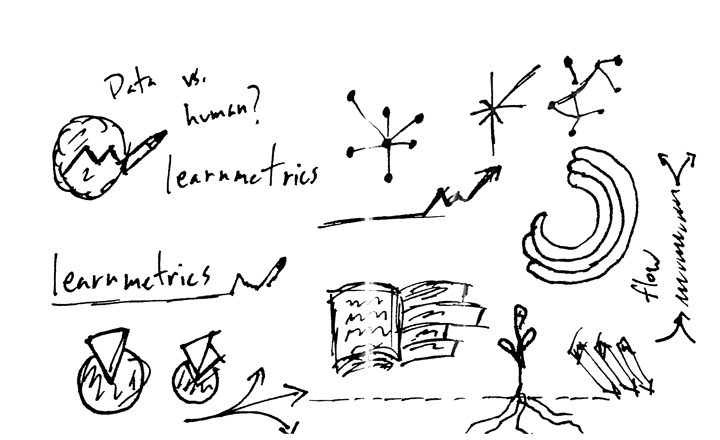 Data vs.
human?
learnmetrics
learnmetrics
flow